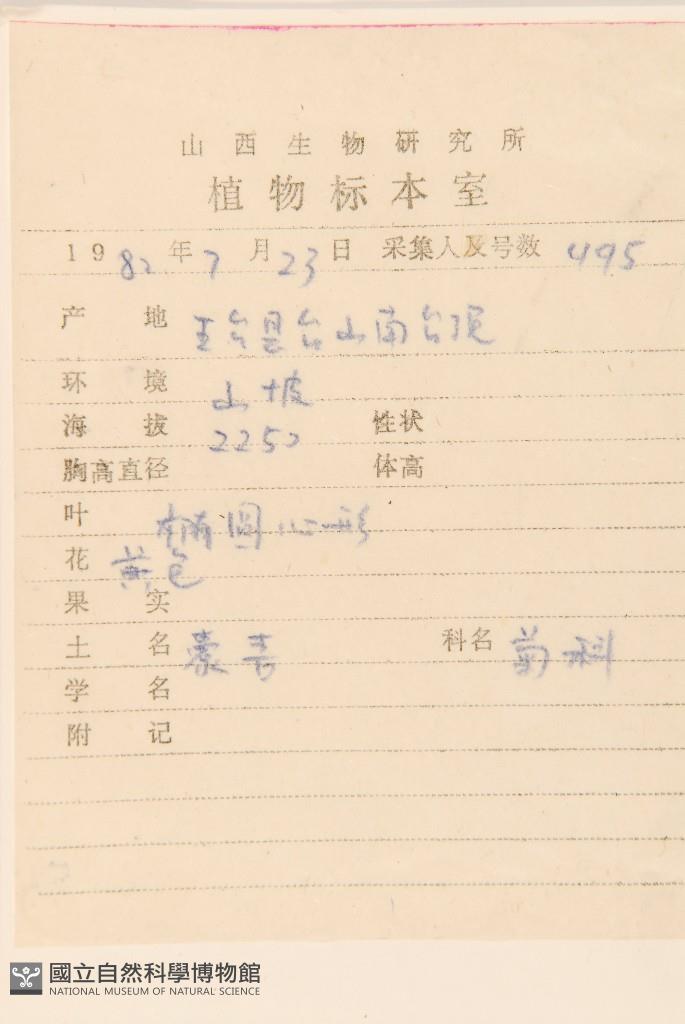 山西生物研究所
植物标本室
1982年7月23日 采集人及号数 495
产地 五台县台山南台顶
环境 山坡
海拔 2250 性状
胸高直径 体高
叶 椭圆心形
花 黄色
果实
土名 橐吾 科名 菊科
学名
附记
國立自然科學博物館
NATIONAL MUSEUM OF NATURAL SCIENCE